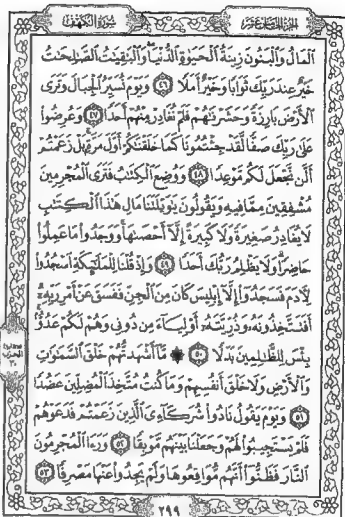 الجزء الخامس عشر
سورة الكهف
ٱلْمَالُ وَٱلْبَنُونَ زِينَةُ ٱلْحَيَوٰةِ ٱلدُّنْيَا وَٱلْبَٰقِيَٰتُ ٱلصَّٰلِحَٰتُ
خَيْرٌ عِندَ رَبِّكَ ثَوَابًا وَخَيْرٌ أَمَلًا ٤٦ وَيَوْمَ نُسَيِّرُ ٱلْجِبَالَ وَتَرَى
ٱلْأَرْضَ بَارِزَةً وَحَشَرْنَٰهُمْ فَلَمْ نُغَادِرْ مِنْهُمْ أَحَدًا ٤٧ وَعُرِضُوا۟
عَلَىٰ رَبِّكَ صَفًّا لَّقَدْ جِئْتُمُونَا كَمَا خَلَقْنَٰكُمْ أَوَّلَ مَرَّةٍۭ بَلْ زَعَمْتُمْ
أَلَّن نَّجْعَلَ لَكُم مَّوْعِدًا ٤٨ وَوُضِعَ ٱلْكِتَٰبُ فَتَرَى ٱلْمُجْرِمِينَ
مُشْفِقِينَ مِمَّا فِيهِ وَيَقُولُونَ يَٰوَيْلَتَنَا مَالِ هَٰذَا ٱلْكِتَٰبِ
لَا يُغَادِرُ صَغِيرَةً وَلَا كَبِيرَةً إِلَّآ أَحْصَىٰهَا وَوَجَدُوا۟ مَا عَمِلُوا۟
حَاضِرًا وَلَا يَظْلِمُ رَبُّكَ أَحَدًا ٤٩ وَإِذْ قُلْنَا لِلْمَلَٰٓئِكَةِ ٱسْجُدُوا۟
لِءَادَمَ فَسَجَدُوٓا۟ إِلَّآ إِبْلِيسَ كَانَ مِنَ ٱلْجِنِّ فَفَسَقَ عَنْ أَمْرِ رَبِّهِۦٓ
أَفَتَتَّخِذُونَهُۥ وَذُرِّيَّتَهُۥٓ أَوْلِيَآءَ مِن دُونِى وَهُمْ لَكُمْ عَدُوٌّۢ
بِئْسَ لِلظَّٰلِمِينَ بَدَلًا ٥٠ ۞ مَّآ أَشْهَدتُّهُمْ خَلْقَ ٱلسَّمَٰوَٰتِ
وَٱلْأَرْضِ وَلَا خَلْقَ أَنفُسِهِمْ وَمَا كُنتُ مُتَّخِذَ ٱلْمُضِلِّينَ عَضُدًا
٥١ وَيَوْمَ يَقُولُ نَادُوا۟ شُرَكَآءِىَ ٱلَّذِينَ زَعَمْتُمْ فَدَعَوْهُمْ
فَلَمْ يَسْتَجِيبُوا۟ لَهُمْ وَجَعَلْنَا بَيْنَهُم مَّوْبِقًا ٥٢ وَرَءَا ٱلْمُجْرِمُونَ
ٱلنَّارَ فَظَنُّوٓا۟ أَنَّهُم مُّوَاقِعُوهَا وَلَمْ يَجِدُوا۟ عَنْهَا مَصْرِفًا ٥٣
الحزب
٣٠
٢٩٩